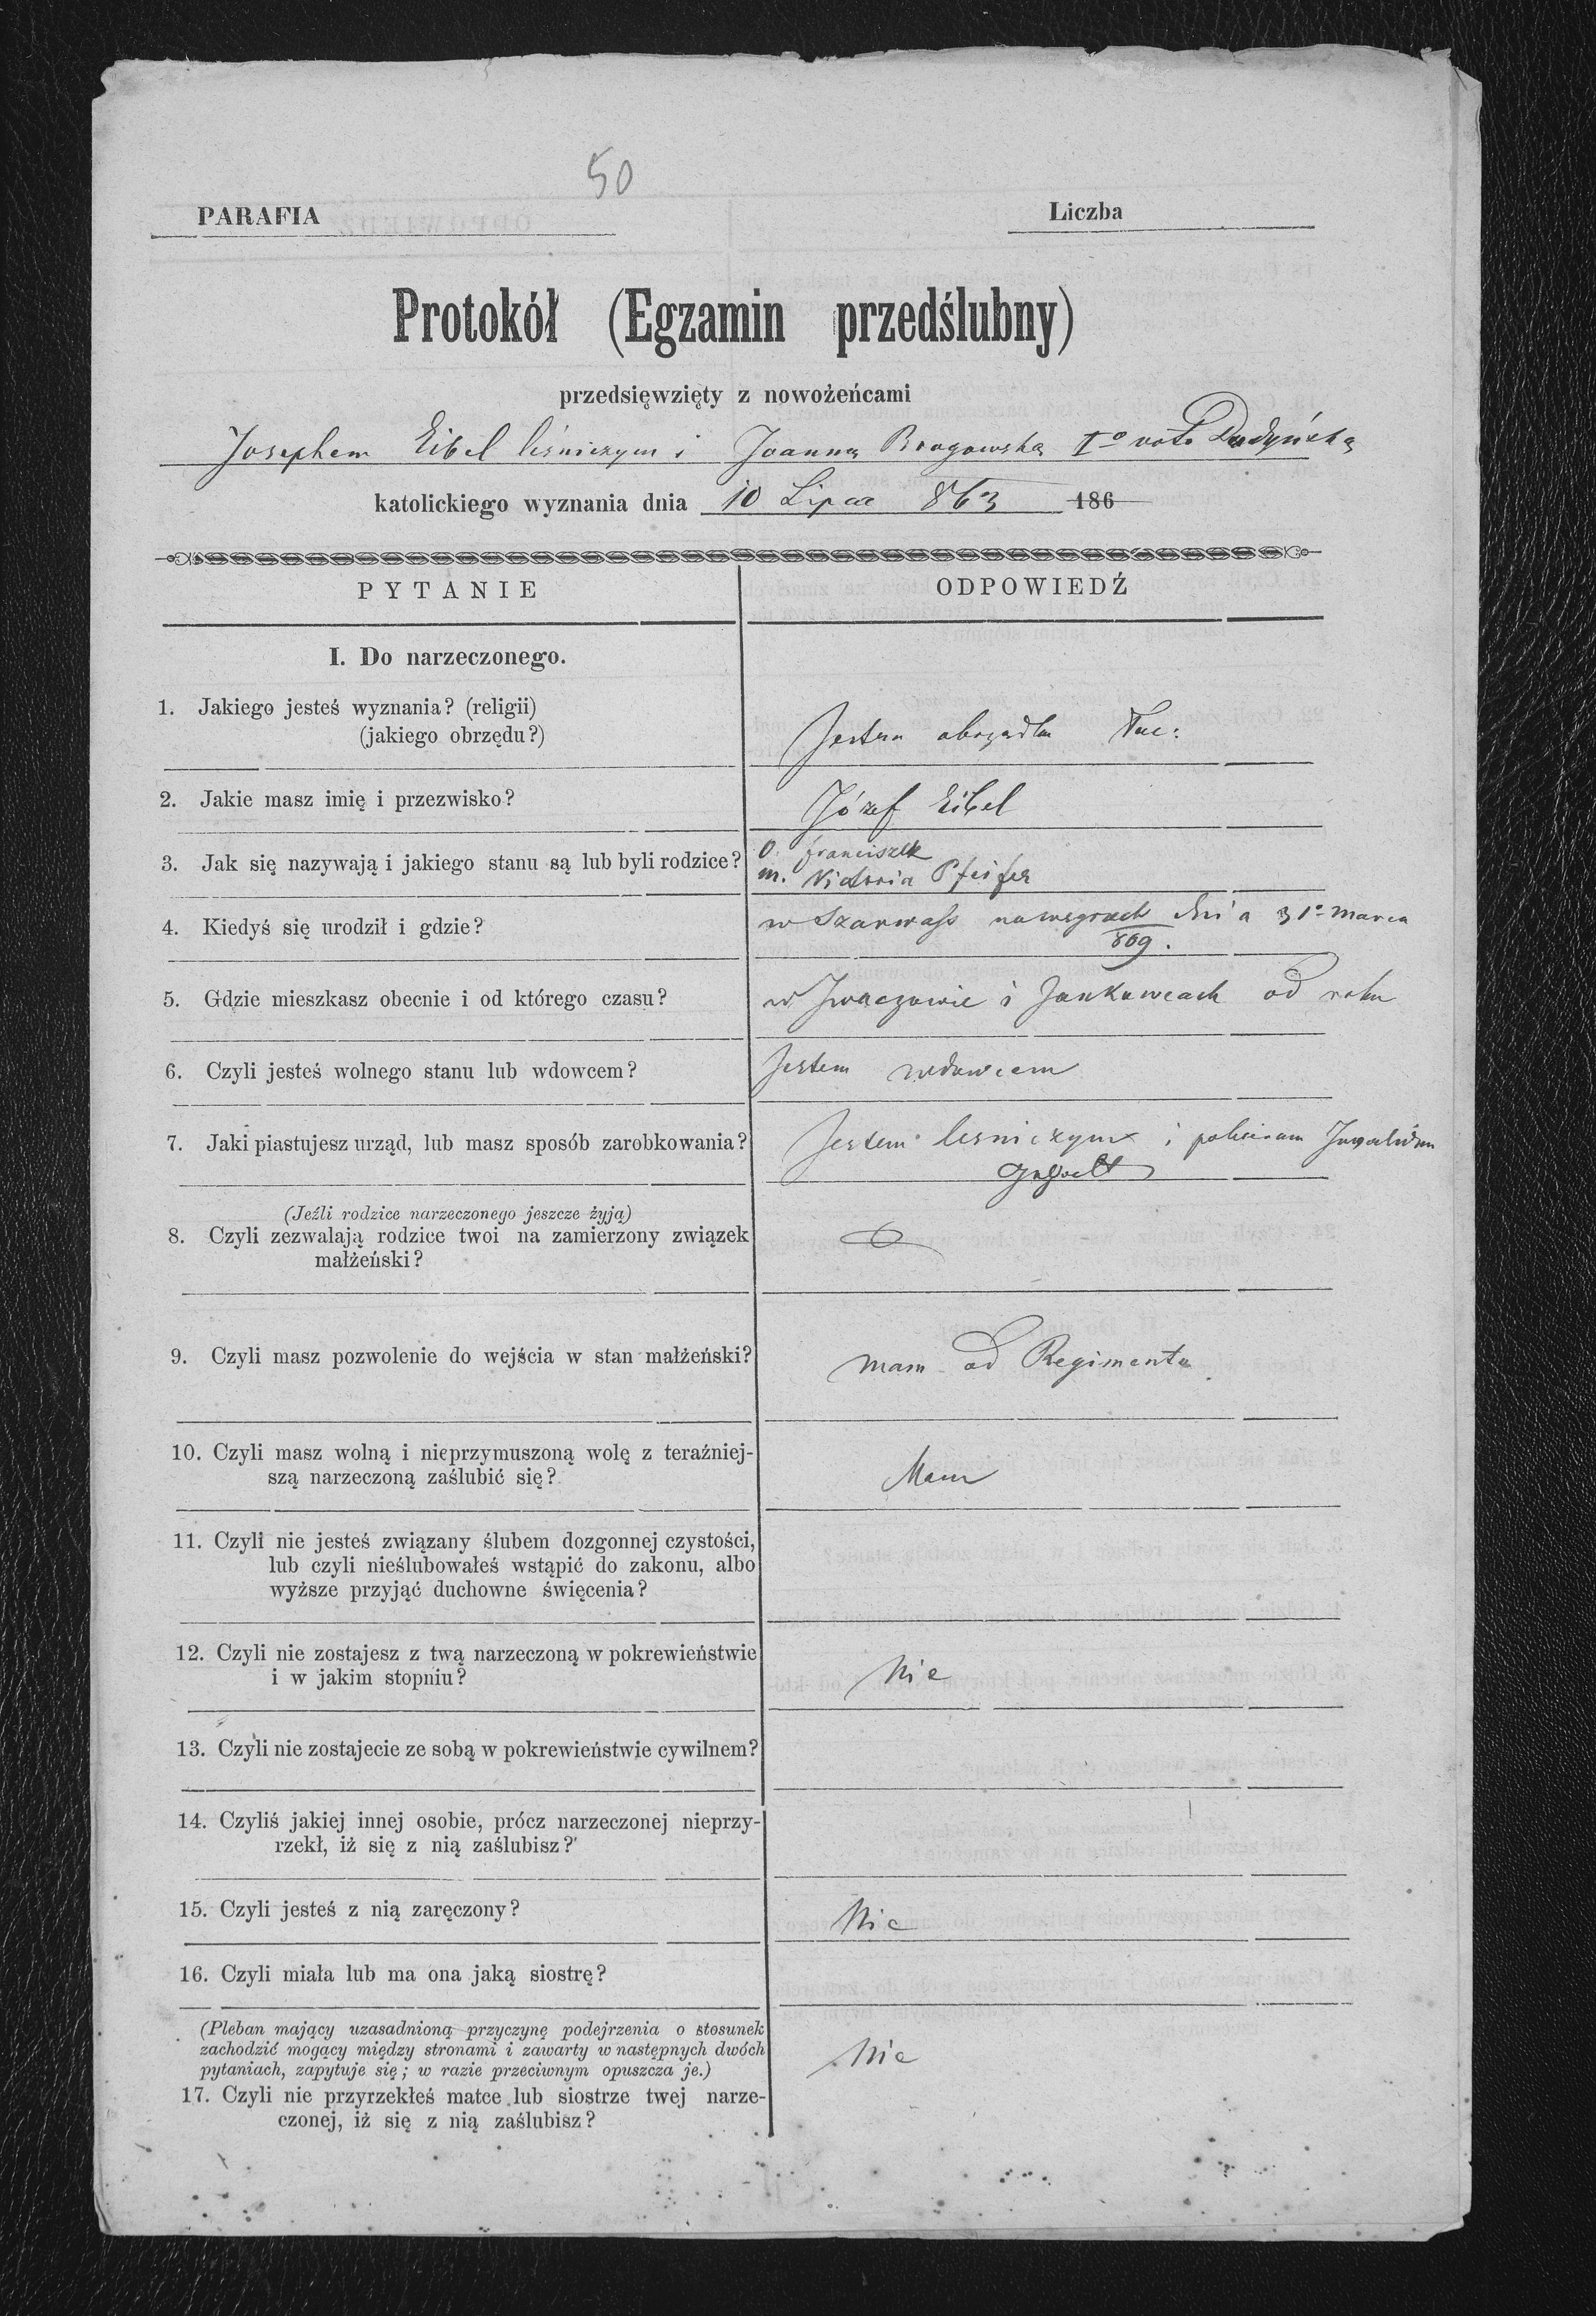 50
PARAFIA
Liczba
Protokół (Egzamin przedślubny)
przedsięwzięty z nowożeńcami
Josephem Eibel leśniczym i Joanną Brogowską Io voto Dudyńską
katolickiego wyznania dnia 10 Lipca 863 186
PYTANIE
ODPOWIEDŹ
I. Do narzeczonego.
1. Jakiego jesteś wyznania? (religii)
(jakiego obrzędu?)
Jestem obrządku Łac:
2. Jakie masz imię i przezwisko?
Józef Eibel
3. Jak się nazywają i jakiego stanu są lub byli rodzice?
o. franciszek
m. Victoria Pfeifer
4. Kiedyś się urodził i gdzie?
w Szarwasz na węgrzech dnia 31o marca
809.
5. Gdzie mieszkasz obecnie i od którego czasu?
w Iwaczowie i Jankowcach od roku
6. Czyli jesteś wolnego stanu lub wdowcem?
Jestem wdowcem
7. Jaki piastujesz urząd, lub masz sposób zarobkowania?
Jestem leśniczym i pobieram
(Jeźli rodzice narzeczonego jeszcze żyją)
8. Czyli zezwalają rodzice twoi na zamierzony związek
małżeński?
9. Czyli masz pozwolenie do wejścia w stan małżeński?
mam od Regimentu
10. Czyli masz wolną i nieprzymuszoną wolę z teraźniej-
szą narzeczoną zaślubić się?
Mam
11. Czyli nie jesteś związany ślubem dozgonnej czystości,
lub czyli nieślubowałeś wstąpić do zakonu, albo
wyższe przyjąć duchowne święcenia?
12. Czyli nie zostajesz z twą narzeczoną w pokrewieństwie
i w jakim stopniu?
Nie
13. Czyli nie zostajecie ze sobą w pokrewieństwie cywilnem?
14. Czyliś jakiej innej osobie, prócz narzeczonej nieprzy-
rzekł, iż się z nią zaślubisz?
15. Czyli jesteś z nią zaręczony?
Nie
16. Czyli miała lub ma ona jaką siostrę?
(Pleban mający uzasadnioną przyczynę podejrzenia o stosunek
zachodzić mogący między stronami i zawarty w następnych dwóch
pytaniach, zapytuje się; w razie przeciwnym opuszcza je.)
Nie
17. Czyli nie przyrzekłeś matce lub siostrze twej narze-
czonej, iż się z nią zaślubisz?